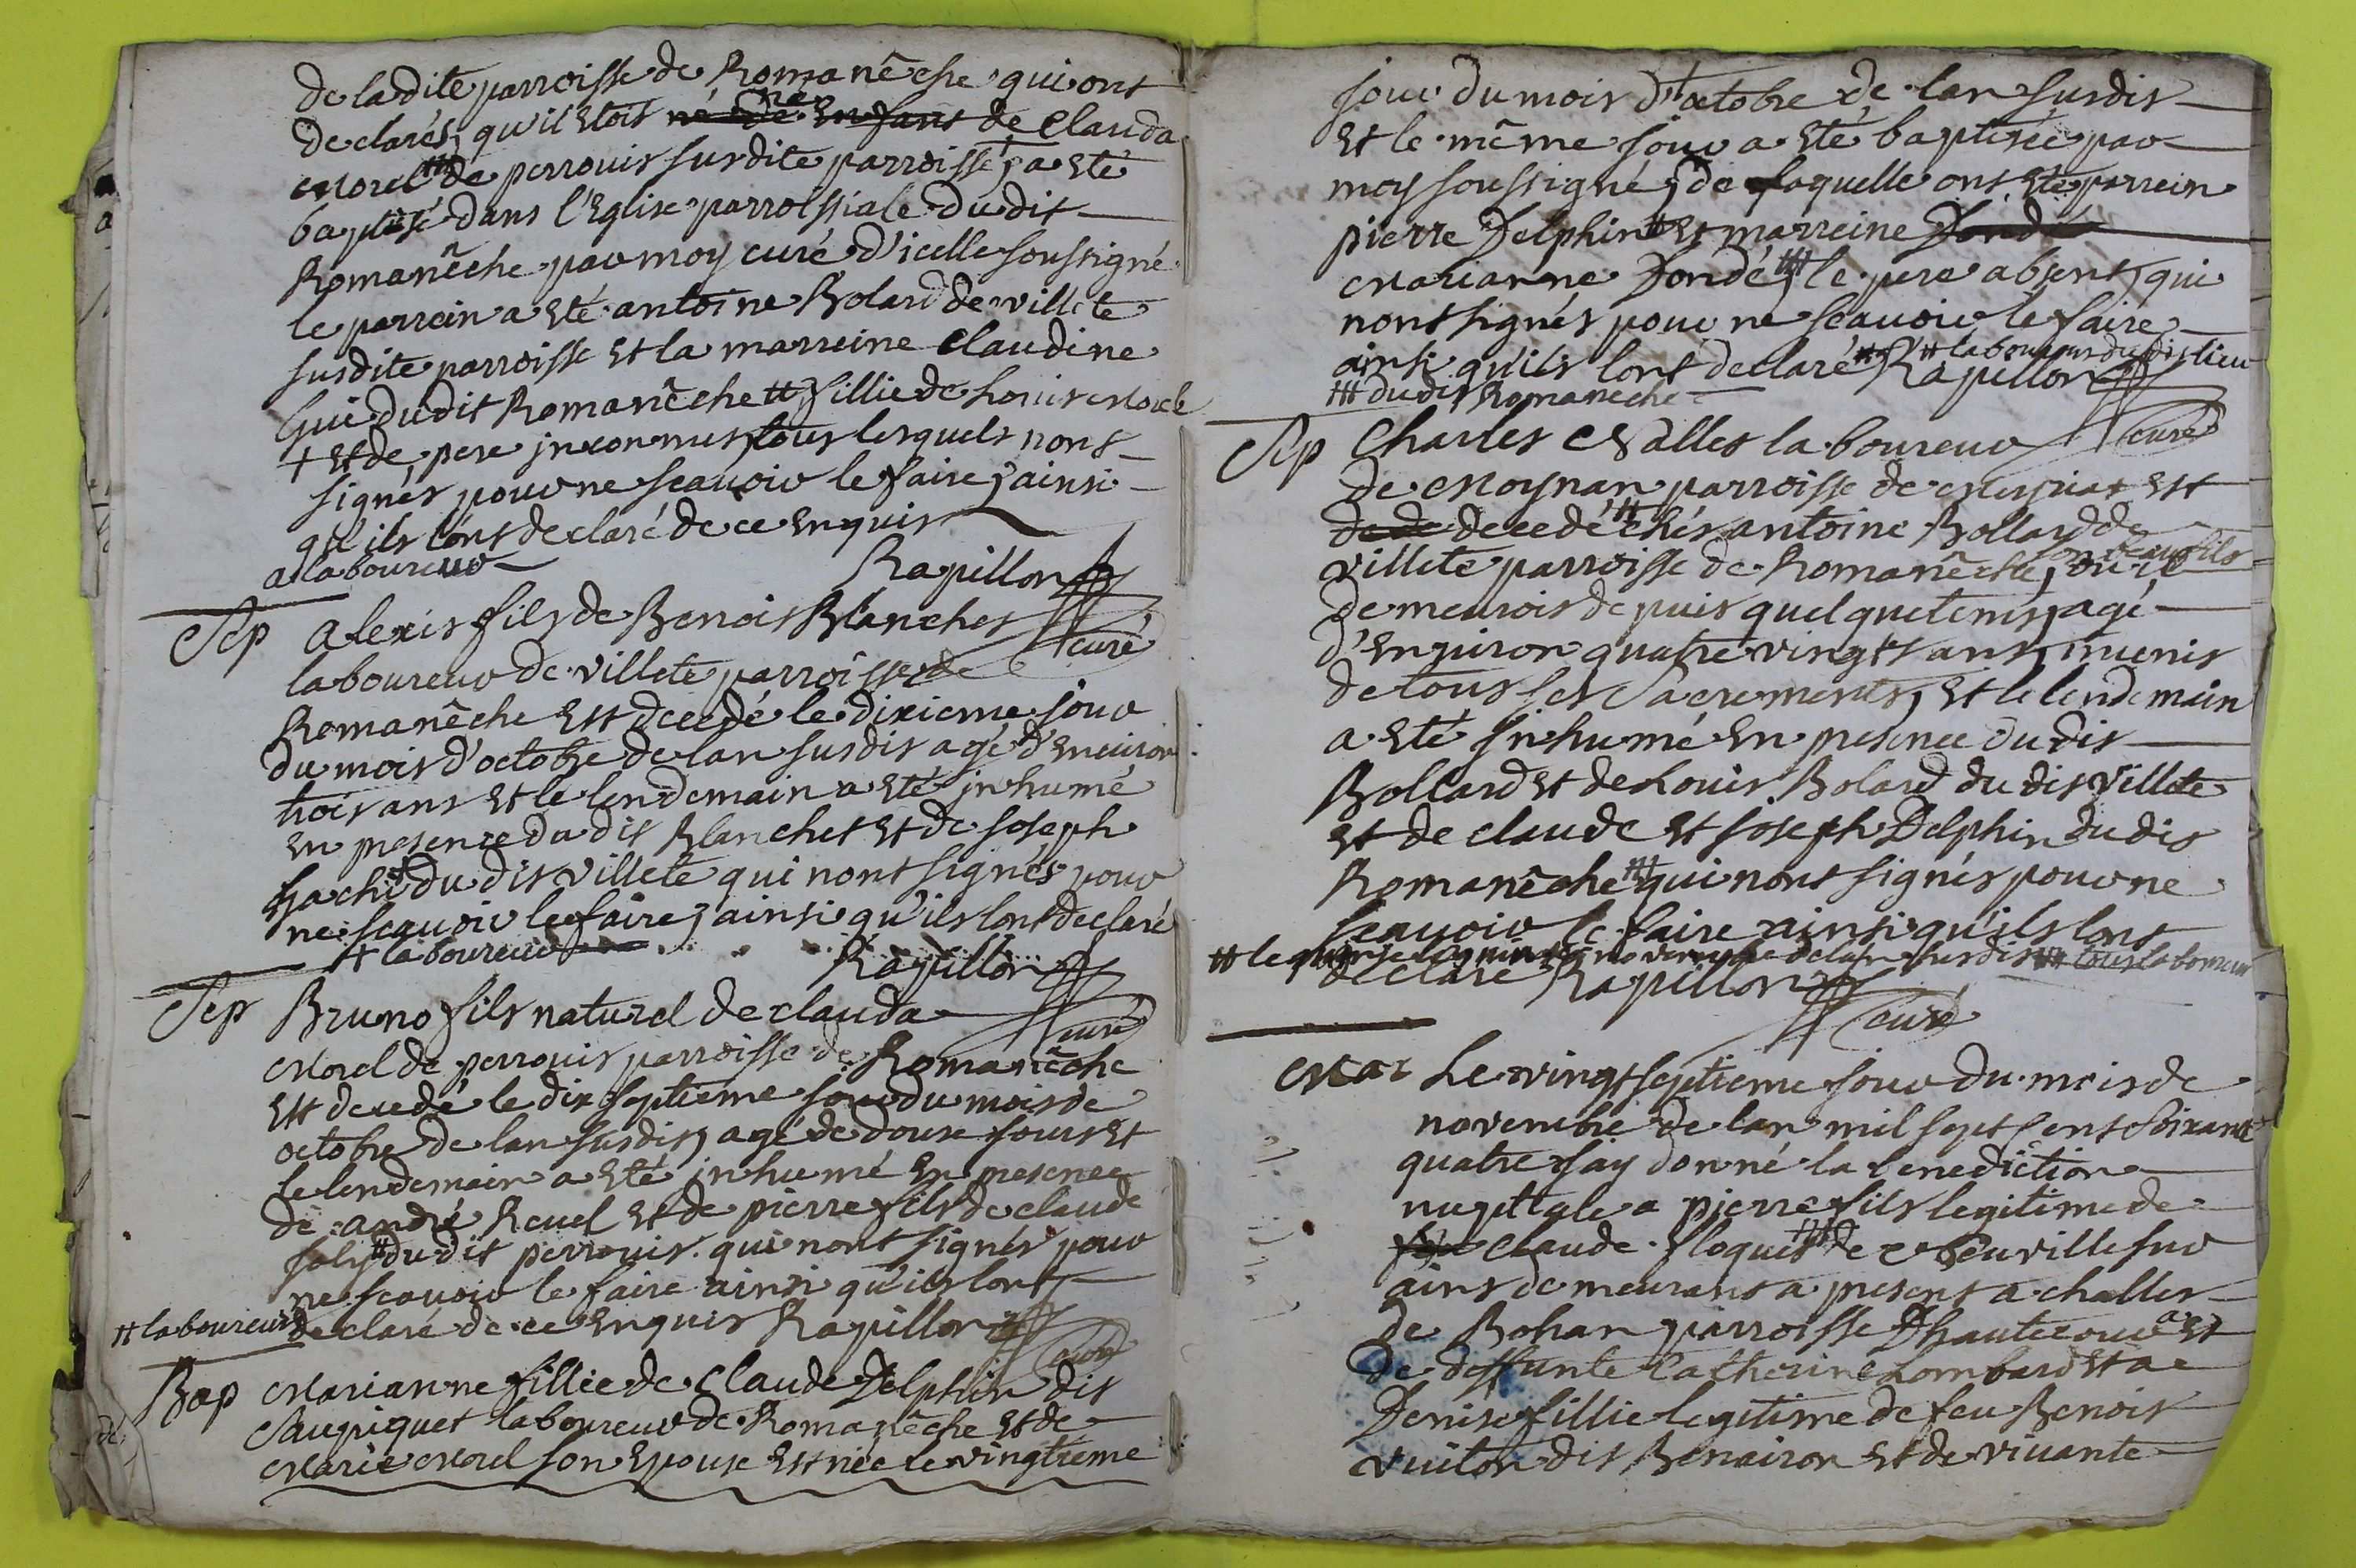 de ladite parroisse de Romanêche qui ont
declarés, qu'il etoit né de Clauda
Morel ### de perrouis susdite parroisse, a eté
baptisé dans l'Eglise parroissiale dudit
Romanêche par moy curé d'icelle soussigné
le parrein a eté antoine Bolard de villete
susdite parroisse et la marreine Claudine
Gui dudit Romanêche ## fillie de Louis Morel
+ et de pere inconnus, tous lesquels nont
signés, pour ne scauoir le faire, ainsi
qu'ils lont declaré de ce Enquis
a laboureur Rapillon
curé
Sep alexis fils de Benoit Blanchet
laboureur de villete parroisse de
Romanêche Est decedé le dixieme jour
du mois d'octobre de lan susdit agé d'Enuiron
trois ans et le lendemain a eté inhumé
en presence du dit Blanchet et de joseph
dudit villete qui nont signés pour
ne scauoir le faire, ainsi qu'ils lont declaré
# laboureur Rapillon
curé
Sep Bruno fils naturel de clauda
Morel de perrouis parroisse de Romanêche
Est decedé le dix septieme jour du mois de
octobre de lan susdit, agé de douse jours et
le lendemain a eté inhumé En presence
de andré Reuel et de pierre fils de claude
# dudit perrouis qui nont signés pour
ne scauoir le faire ainsi qu'ils lont
## laboureurs declaré de ce Enquis Rapillon
curé
Bap Marianne fillie de Claude Delphin dit
Saupiquet laboureur de Romanêche et de
Marie Morel son Epouse Est née le vingtieme
jour du mois d'octobre de lan susdit
et le même jour a eté baptisée par
moy soussigné, de laquelle ont eté parrein
pierre Delphin # et marreine
Marianne Dondé ### le pere absent, qui
nont signés pour ne scauoir le faire
ainsi qu'ils lont declaré # laboureur dudit lieu
### dudit Romaneche Rapillon
curé
Sep Charles laboureur
de Moynan parroisse de est
decedé ## chés antoine Bollard de
villete parroisse de Romanêche, son beau fils où il
demeuroit depuis quelque tems, agé
d'Enuiron quatre vingts ans, munis
de tous les Sacrements, et le lendemain
a eté Inhumé En presence du dit
Bollard et de Louis Bolard du dit villete
et de claude et joseph Delphin du dit
Romanêche ### qui nont signés pour ne
scauoir le faire ainsi qu'ils lont
## le quinse novembre de lan susdit ### tous laboureurs
declaré Rapillon
curé
Mar Le vingt septieme jour du mois de
novembre de lan mil sept cent soixante
quatre jay donné la benediction
nuptiale a pierre fils legitime de
claude floquet ### de sur
ains demeurant a present a challes
de Bohan parroisse D'hautecour et
de deffunte Catherine Lombard et a
Denise fillie legitime de feu Benoit
vuiton dit Benairon et de viuante